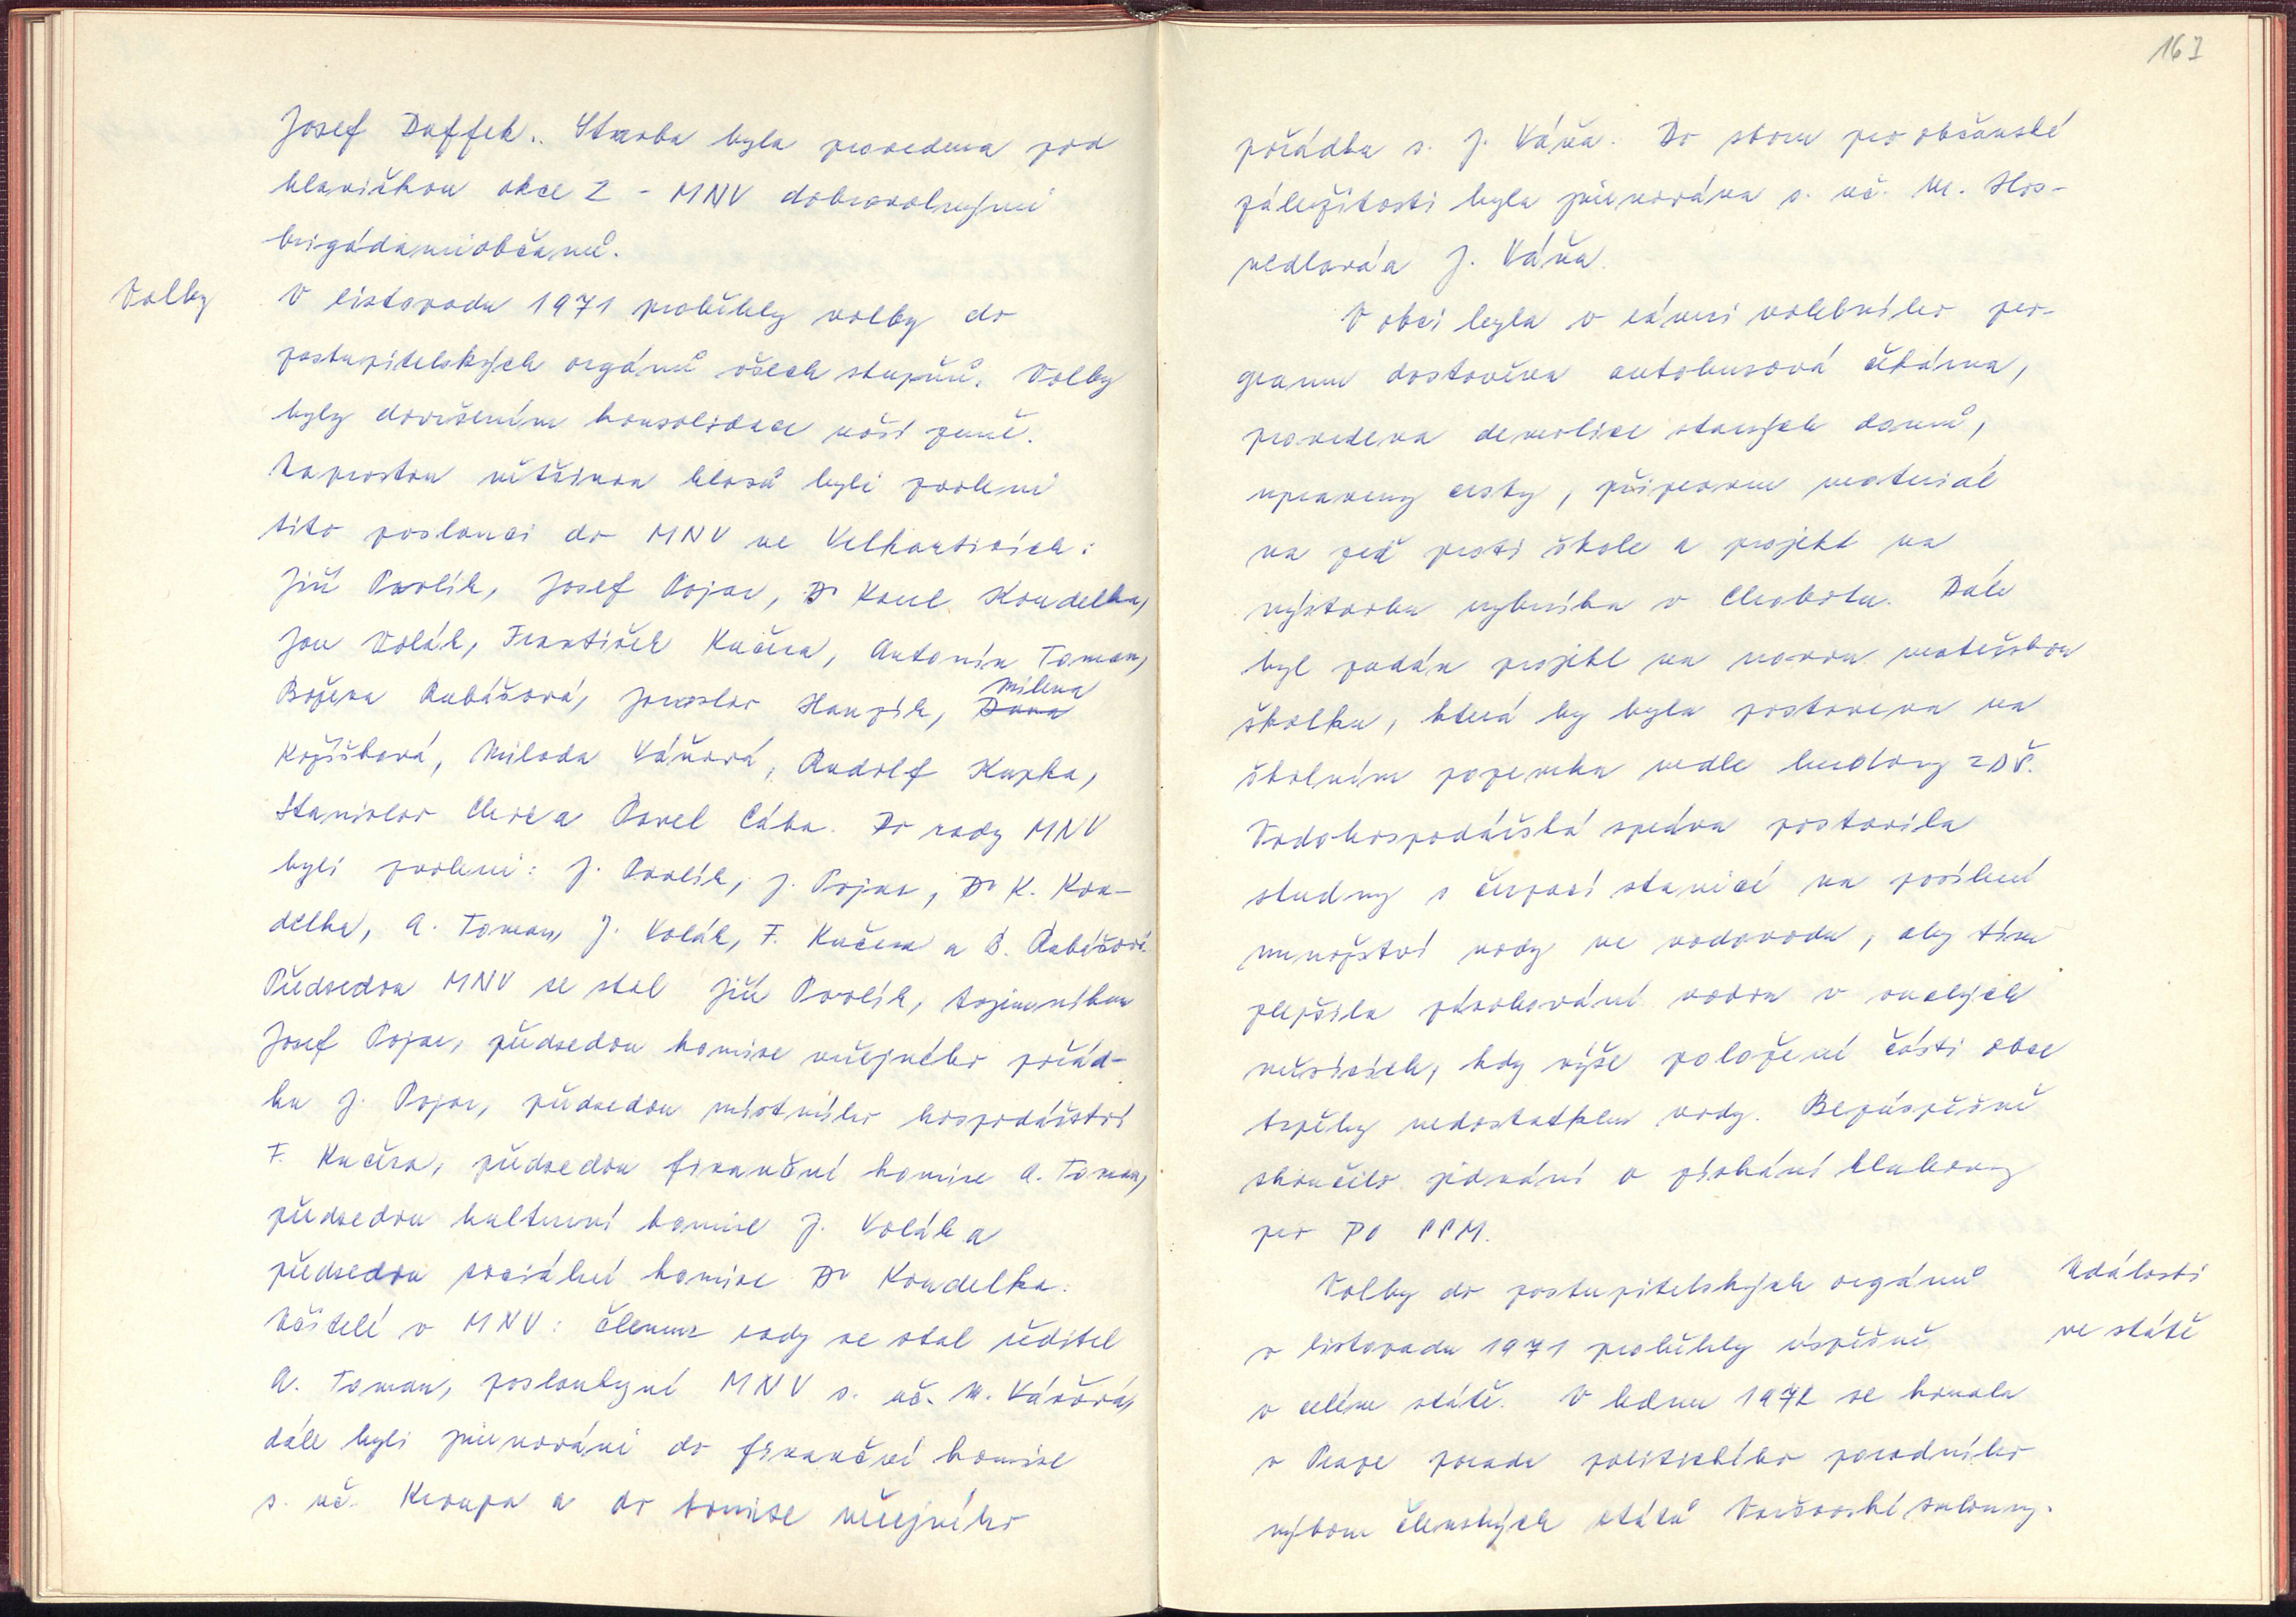 Josef Duffek. Stavba byla provedena pod
hlavičkou akce Z - MNV dobrovolnými
brigádami občanů.
Volby
V listopadu 1971 proběhly volby do
zastupitelských orgánů všech stupňů. Volby
byly dovršením konsolidace naší země.
Naprostou většinou hlasů byli zvoleni
tito poslanci do MNV ve Velharticích:
Jiří Pavlík, Josef Pojar, Dr Karel Koudelka,
Jan Volák, František Kučera, Antonín Toman,
Božena Rubášová, Jaroslav Hanzík, Dana Milena
Kožíšková, Milada Váňová, Rudolf Kupka,
Stanislav Chroza Pavel Cába. Do rady MNV
byli zvoleni: J. Pavlík, J. Pojar, Dr K. Kou-
delka, A. Toman, J. Volák, F. Kučera a B. Rubášová.
Předsedou MNV se stal Jiří Pavlík, tajemníkem
Josef Pojar, předsedou komise veřejného pořád-
ku J. Pojar, předsedou místního hospodářství
F. Kučera, předsedou finanční komise A. Toman,
předsedou kulturní komise J. Volák a
předsedou sociální komise Dr Koudelka.
Učitelé v MNV: členem rady se stal ředitel
A. Toman, poslankyní MNV s. uč. M. Váňová,
dále byli jmenováni do finanční komise
s. uč. Kroupa a do komise veřejného
163
pořádku s. J. Váňa. Do sboru pro občanské
záležitosti byla jmenována s. uč. M. Hos-
nedlová a J. Váňa.
V obci byla v rámci volebního pro-
gramu dostavěna autobusová čekárna,
provedena demolice starých domů,
upraveny cesty, připraven materiál
na zeď proti škole a projekt na
výstavbu rybníka v Chobotu. Dále
byl zadán projekt na novou mateřskou
školku, která by byla postavena na
školním pozemku vedle budovy ZDŠ.
Vodohospodářská správa postavila
studny s čerpací stanicí na posílení
množství vody ve vodovodu, aby tím
zlepšila zásobování vodou v suchých
měsících, kdy výše položené části obce
trpěly nedostatkem vody. Bezúspěšně
skončilo jednání o získání klubovny
pro PO PPM.
Události
ve státě
Volby do zastupitelských orgánů
v listopadu 1971 proběhly úspěšně
v celém státě. V lednu 1972 se konala
v Praze porada politického poradního
výboru členských států Varšavské smlouvy.